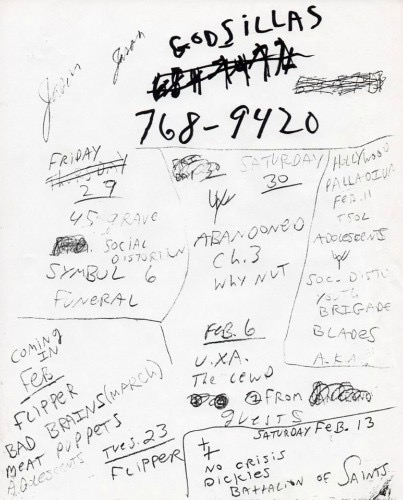 Jason Jason
GODSILLAS
768-9420
FRIDAY
29
45 GRAVE
SOCIAL
DISTORTION
SYMBOL 6
FUNERAL
SATURDAY
30
W/
ABANDONED
Ch.3
WHY NUT
FEB. 6
U.X.A.
The LEWD
FROM
GUESTS
HOLLYWOOD
PALLADIUM
FEB. 11
TSOL
ADOLESCENTS
W/
SOC. DISTO
YOUTH
BRIGADE
BLADES
A.K.A.
COMING
IN
FEB
FLIPPER
BAD BRAINS (MARCH)
MEAT PUPPETS
ADOLESCENTS
TUES. 23
FLIPPER
SATURDAY FEB. 13
NO CRISIS
DICKIES
BATTALION OF SAINTS